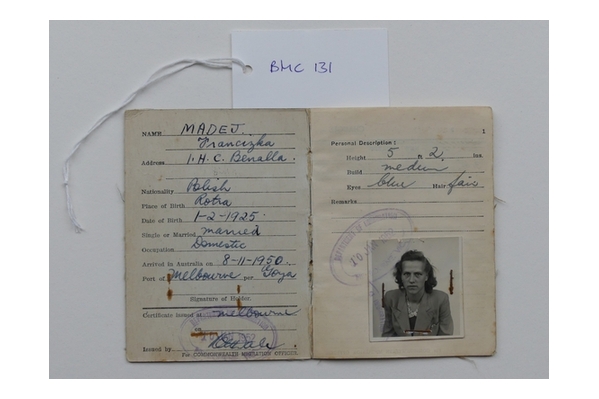 BMC 131
NAME MADEJ.
Franciszka
Address I.H.C. Benalla.
Nationality Polish
Place of Birth Rotra
Date of Birth 1-2-1925.
Single or Married married
Occupation Domestic
Arrived in Australia on 8-11-1950.
Port of Melbourne per Goya
Signature of Holder.
Certificate issued at melbourne
on
Issued by
For COMMONWEALTH MIGRATION OFFICER.
1
Personal Description:
Height 5 ft 2. ins.
Build medium
Eyes blue Hair fair
Remarks